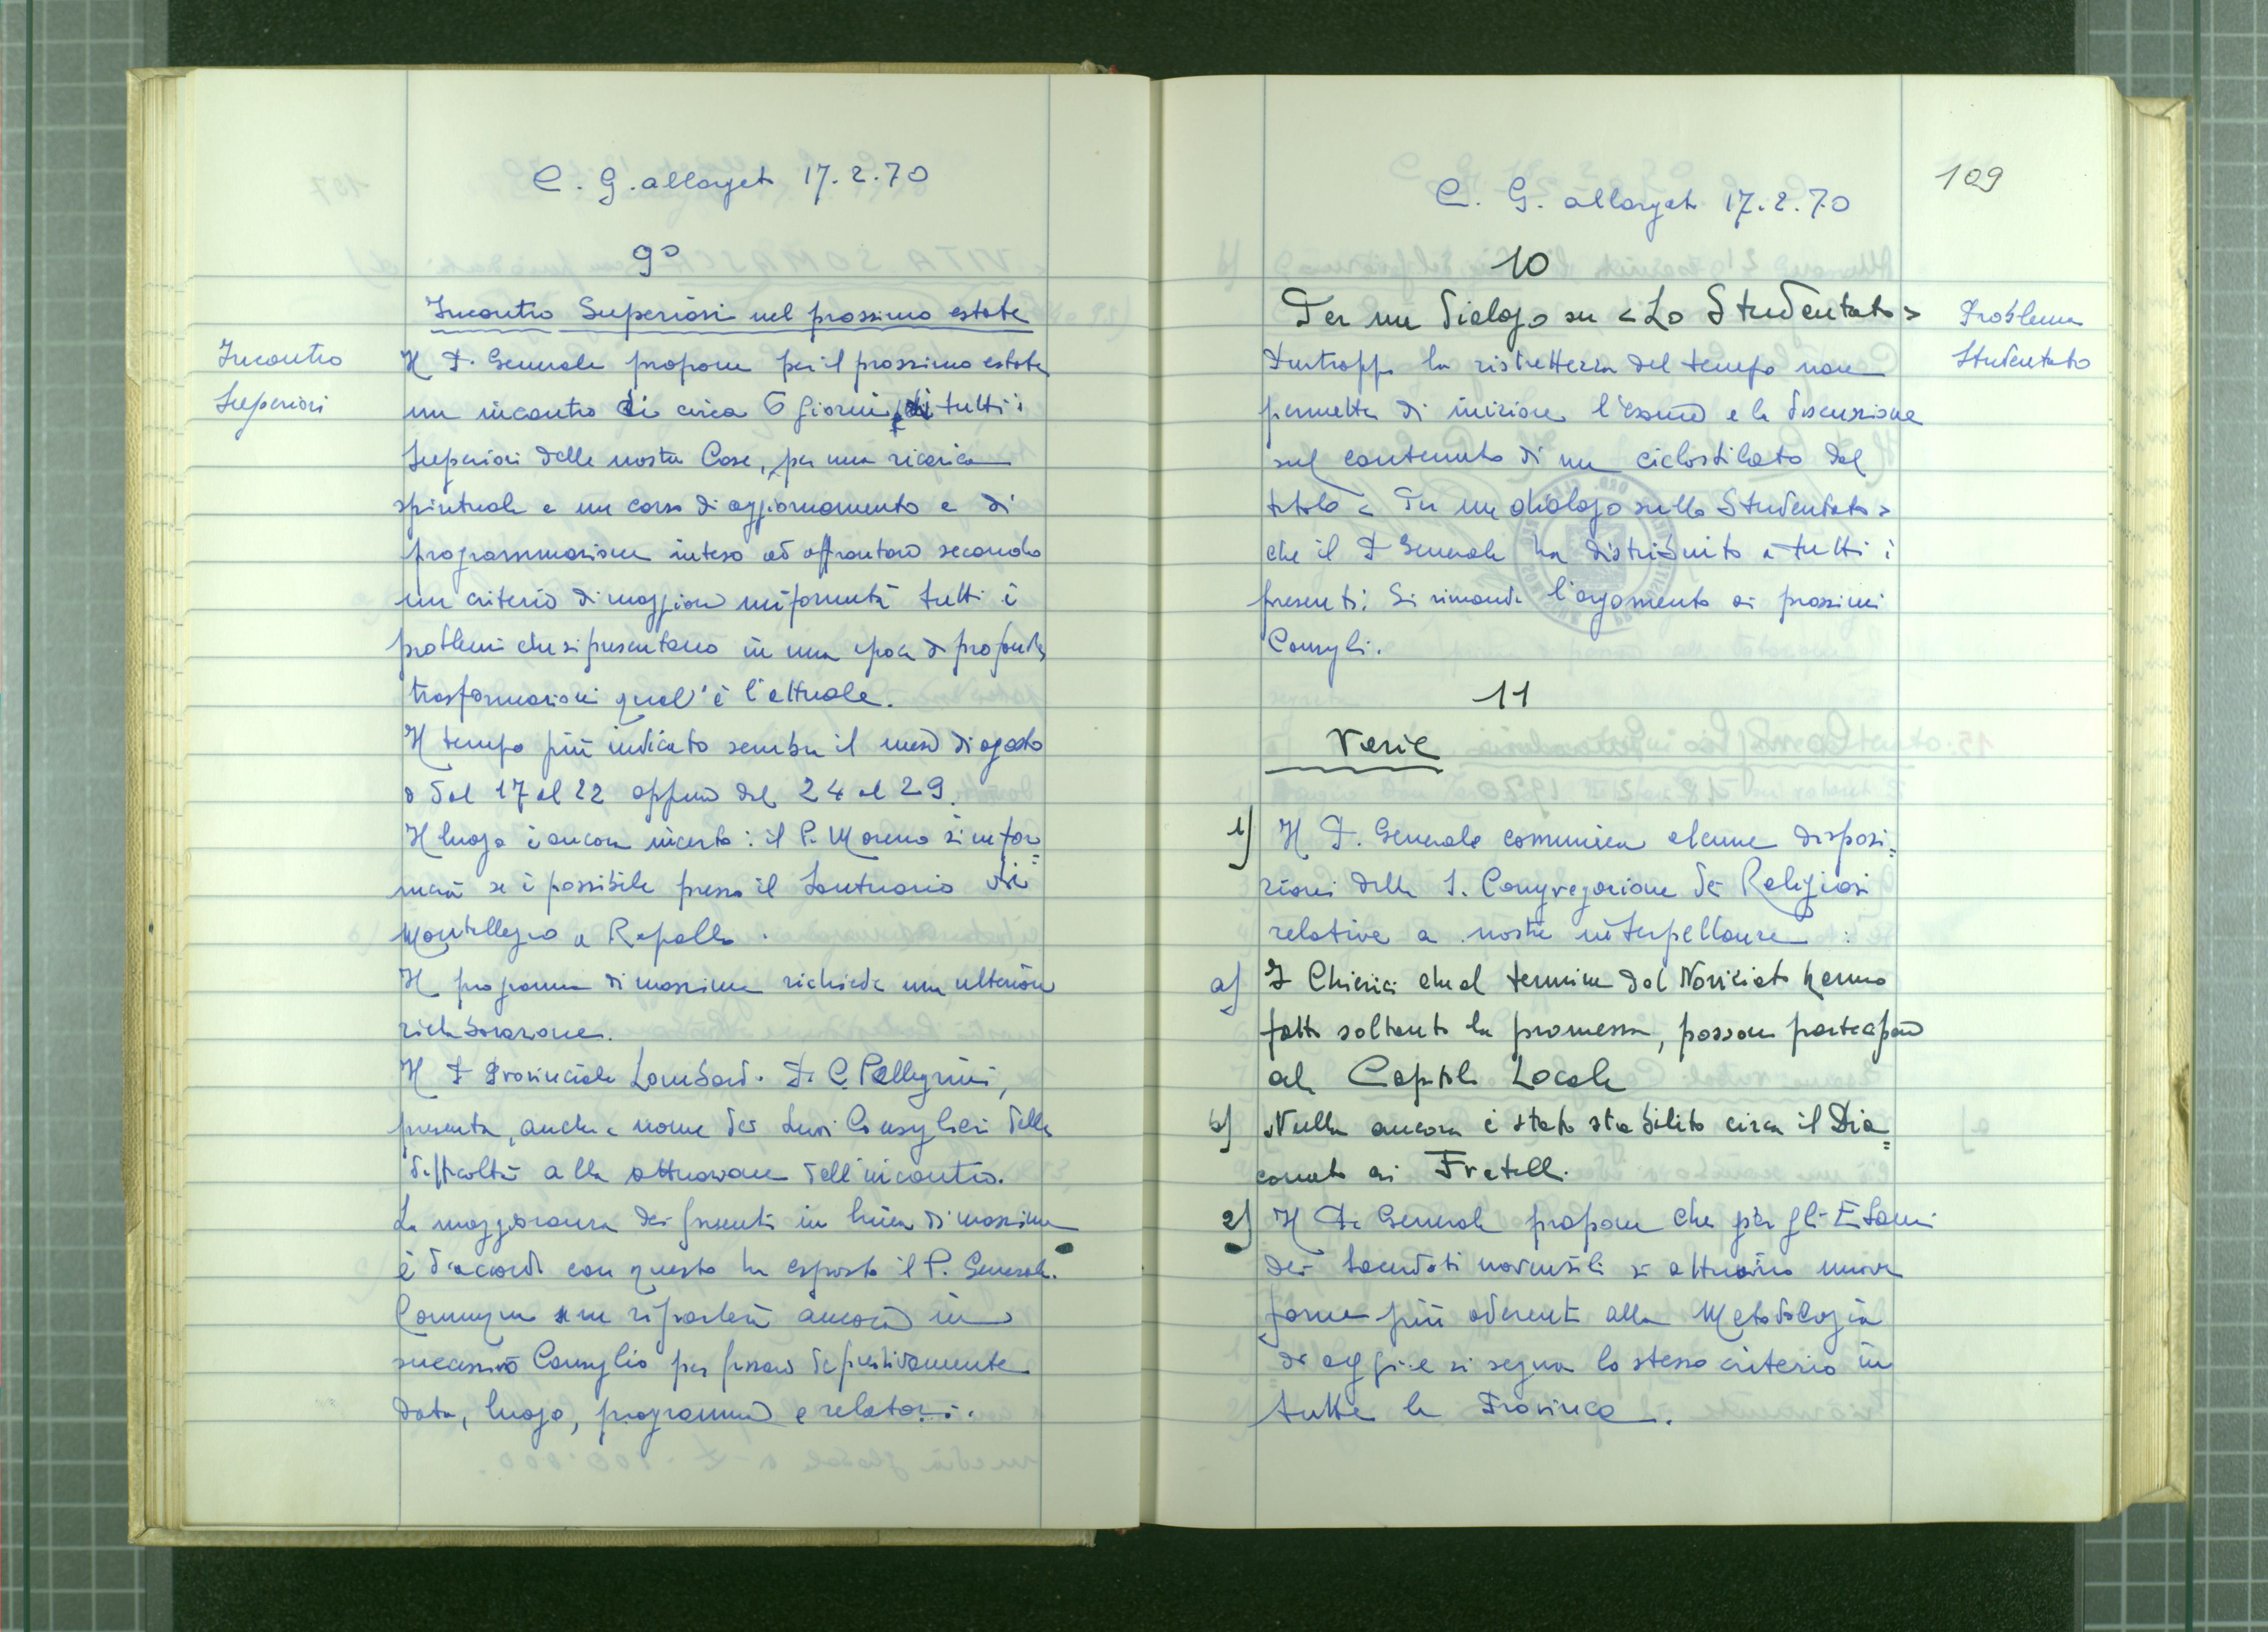 C. G. allargato 17.2.70
9°
Incontro Superiori nel prossimo estate
Incontro
Superiori
Il P. Generale propone per il prossimo estate
un incontro di circa 6 giorni, di tutti i
Superiori delle nostre Case, per una ricarica
spirituale e un corso di aggiornamento e di
programmazione inteso ad affrontare secondo
un criterio di maggiore uniformità tutti i
problemi che si presentano in una epoca di profonde
trasformazioni qual'è l'attuale.
Il tempo più indicato sembra il mese di agosto
o dal 17 al 22 oppure dal 24 al 29.
Il luogo è ancora incerto: il P. Moreno si infor=
merà se è possibile presso il Santuario di
Montallegro a Rapallo.
Il programma di massima richiede una ulteriore
rielaborazione.
Il P. Provinciale Lombardo P. C. Pellegrini,
presenta, anche a nome dei suoi Consiglieri delle
difficoltà alla attuazione dell'incontro.
La maggioranza dei presenti in linea di massima
è d'accordo con quanto ha esposto il P. Generale.
Comunque se ne riparlerà ancora in
successivo Consiglio per fissare definitivamente
data, luogo, programma e relatori.
109
C. G. allargato 17.2.70
10
Per un dialogo su <Lo Studentato>
Problema
Studentato
Purtroppo la ristrettezza del tempo non
permette di iniziare l'esame e la discussione
sul contenuto di un ciclostilato dal
titolo < Per un dialogo sullo Studentato>
che il P. Generale ha distribuito a tutti i
presenti. Si rimanda l'argomento ai prossimi
Consigli.
11
Varie
1) Il P. Generale comunica alcune disposi=
zioni della S. Congregazione dei Religiosi
relative a nostre interpellanze :
a) I Chierici che al termine del Noviziato hanno
fatto soltanto la promessa, possono partecipare
al Capitolo Locale
b) Nulla ancora è stato stabilito circa il Dia=
conato ai Fratelli.
2) Il P. Generale propone che per gli Esami
dei Sacerdoti novensili si attuino nuove
forme più aderenti alla Metodologia
di oggi e si segua lo stesso criterio in
tutte le Provincie.